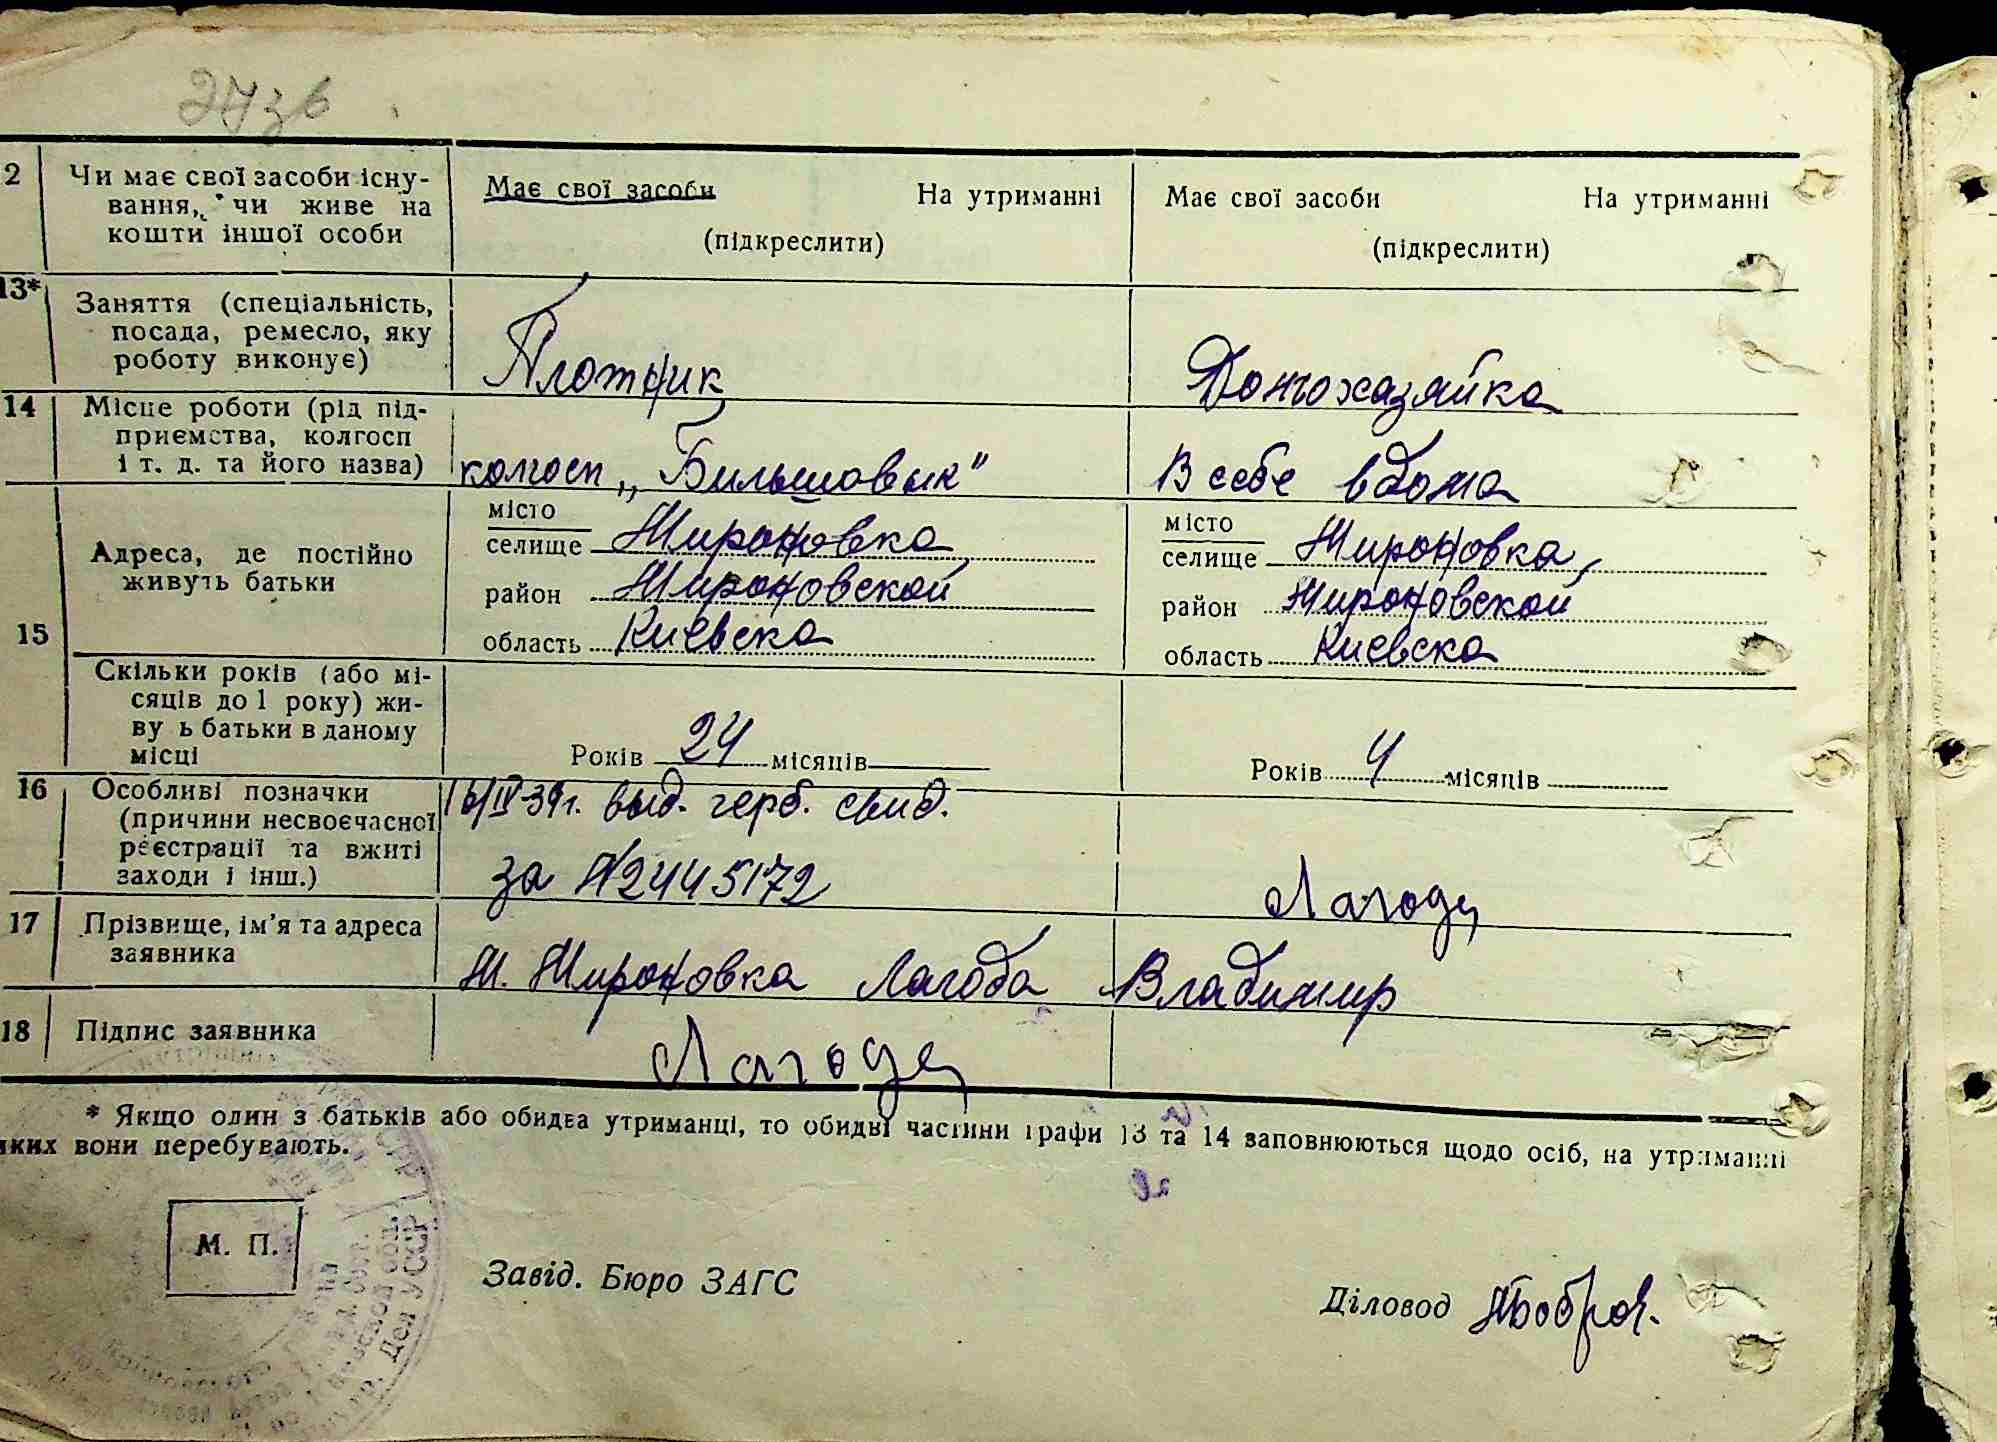 27зв
2 Чи має свої засоби існу- Має свої засоби На утриманні Має свої засоби На утриманні
вання, чи живе на
кошти іншої особи (підкреслити) (підкреслити)
13* Заняття (спеціальність,
посада, ремесло, яку
роботу виконує) Плотник Домохазяйка
14 Місце роботи (рід під-
приємства, колгосп
і т. д. та його назва) колгосп „Бильшовык" В себе вдома
15 Адреса, де постійно
живуть батьки
місто
селище Мироновка місто
селище Мироновка,
район Мироновской район Мироновской
область Киевска область Киевска
Скільки років (або мі-
сяців до 1 року) жи-
ву ь батьки в даному
місці Років 24 місяців Років 4 місяців
16 Особливі позначки 16/IV-39г. выд. герб. свид.
(причини несвоєчасної
реєстрації та вжиті
заходи і інш.) за №2445172 Лагода
17 Прізвище, ім'я та адреса
заявника М. Мироновка Лагода Владимир
18 Підпис заявника Лагода
* Якщо один з батьків або обидва утриманці, то обидві частини графи 13 та 14 заповнюються щодо осіб, на утриманні
яких вони перебувають.
М. П.
Завід. Бюро ЗАГС
Діловод